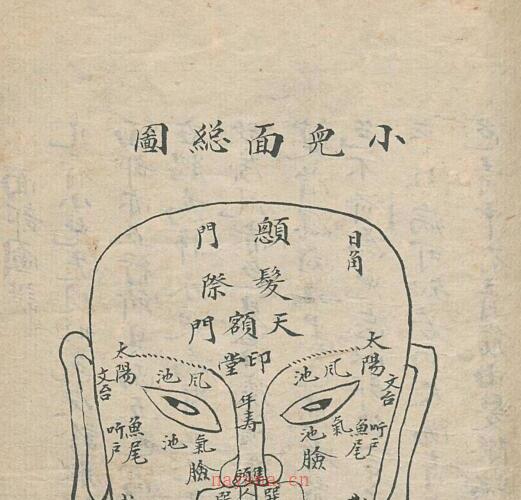 小兒面総圖
顖門
髮際
天門
額
日角
印堂
太陽
太陽
文台
文台
風池
風池
年壽
魚尾
魚尾
听戶
听戶
氣池
氣池
臉
臉